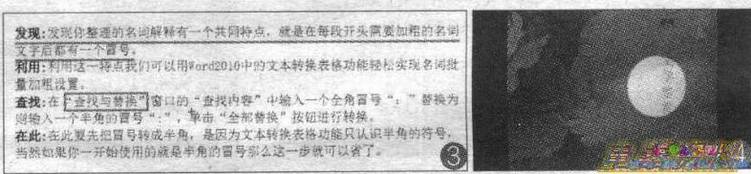 发现:发现你整理的名词解释有一个共同特点，就是在每段开头需要加粗的名词
文字后都有一个冒号。
利用:利用这一特点我们可以用Word2010中的文本转换表格功能轻松实现名词批
量加粗设置。
查找:在“查找与替换”窗口的“查找内容”中输入一个全角冒号“：”替换为
则输入一个半角的冒号“:”，单击“全部替换”按钮进行转换。
在此:在此要先把冒号转成半角，是因为文本转换表格功能只认识半角的符号，
当然如果你一开始使用的就是半角的冒号那么这一步就可以省了。
3
4